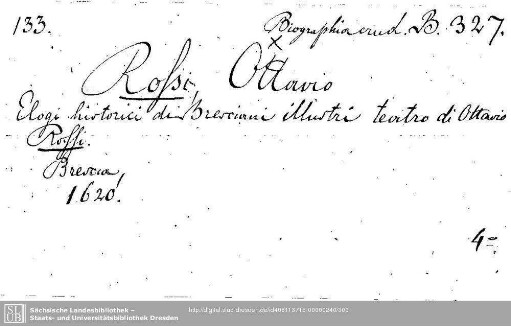 133.
Biographia erud. B. 327.
Rossi, Ottavio
Elogi historici di Bresciani illustri teatro di Ottavio
Rossi.
Brescia,
1620.
4º
SLUB
Sächsische Landesbibliothek –
Staats- und Universitätsbibliothek Dresden